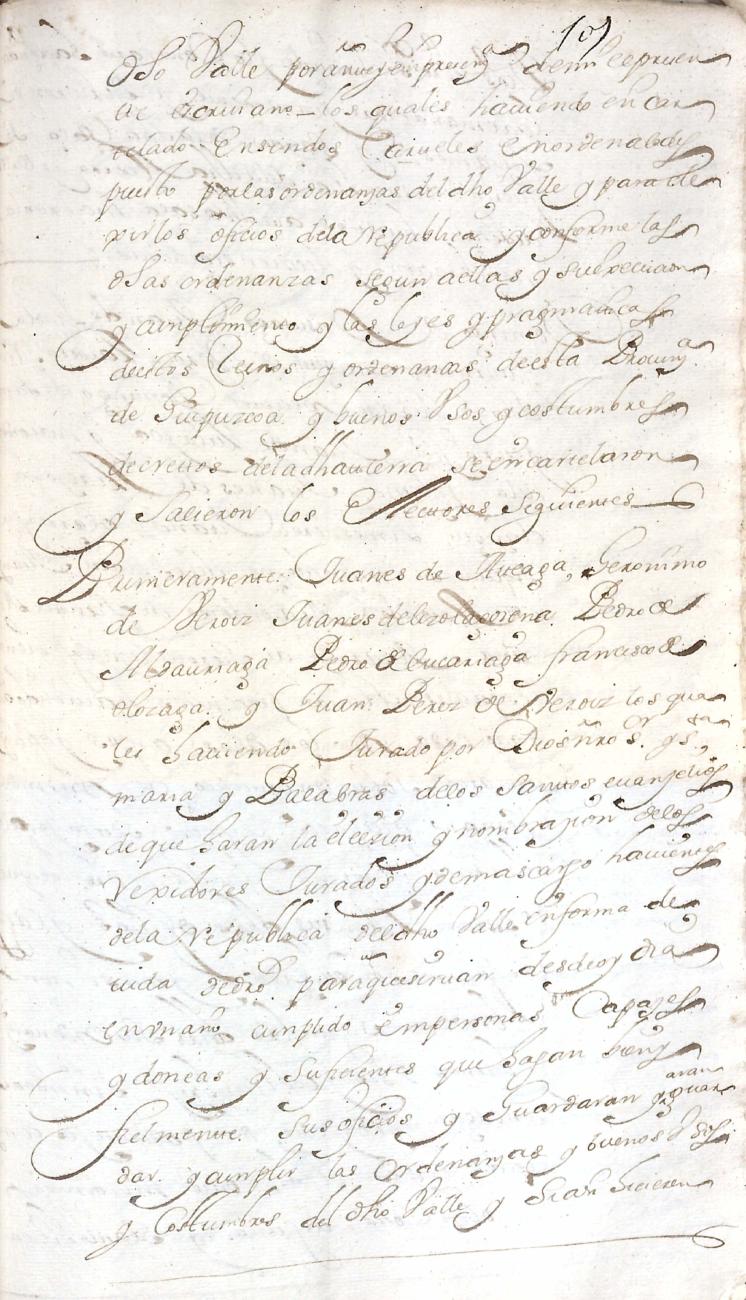 101
dho Valle por ante y en presenª de mi el presen
te escriuano los quales hauiendo en car
telado en sendos Carteles en orden a lo dis
puesto por las ordenanzas del dho Valle y para ele
xir los oficios de la Republica y conforme las
dhas ordenanzas segun aellas y su
y cumplimiento y las leyes y pragmaticas
destos Reinos y ordenanzas de esta Prouinª
de Guipuzcoa y buenos Vsos y costumbres
decretos de la dha se encartelaron
y salieron los Electores siguientes
Primeramente Juanes de Geronimo
de Veroiz Juanes de Pedro de
Pedro de francisco de
olozaga y Juan Perez de Veroiz los qua
les haciendo Jurado por Dios ñro Sor y sta
maria y Palabras de los santos euanjelios
de que haran la elecsion y nombrazion de los
Rexidores Jurados y demas cargo hauientes
de la Republica del dho Valle en forma de
uida de dro para que siruan desde oy dia
en vn año cumplido en personas Capazes
ydoneas y suficientes que hagan bien y
fielmente sus oficios y Guardaran y guar
aran
dar y cumplir las Ordenanzas y buenos Vsos
y Costumbres del dho Valle y hicieren